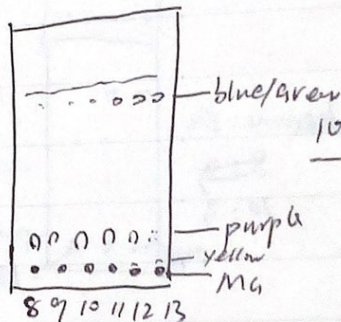 blue/green
10
purple
yellow
8 9 10 11 12 13